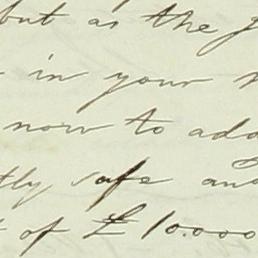 but as the
in your
now to add
tly safe and
of £10.000